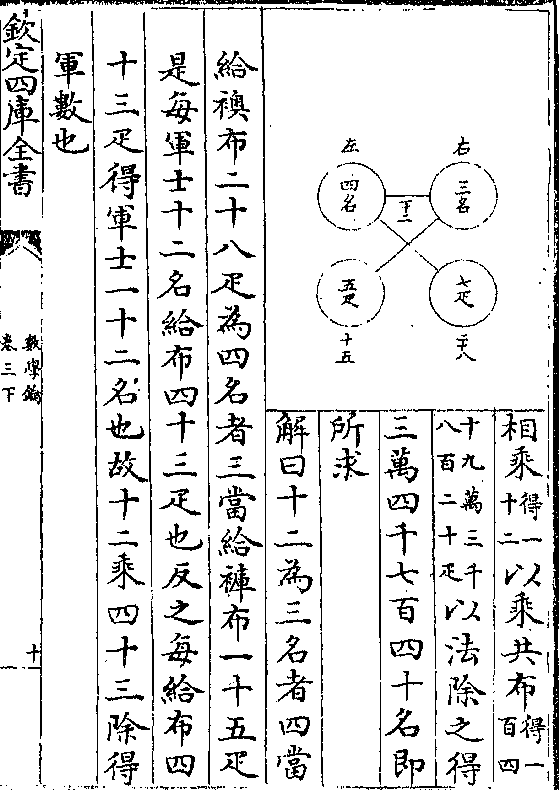 右
左
三名
四名
十二
七疋
五疋
二十八
十五
相乘得一十二以乘共布得一百四
十九萬三千八百二十疋以法除之得
三萬四千七百四十名即
所求
解曰十二為三名者四當
給襖布二十八疋為四名者三當給褲布一十五疋
是每軍士十二名給布四十三疋也反之每給布四
十三疋得軍士一十二名也故十二乘四十三除得
軍數也
欽定四庫全書
數學鑰
卷三下
十